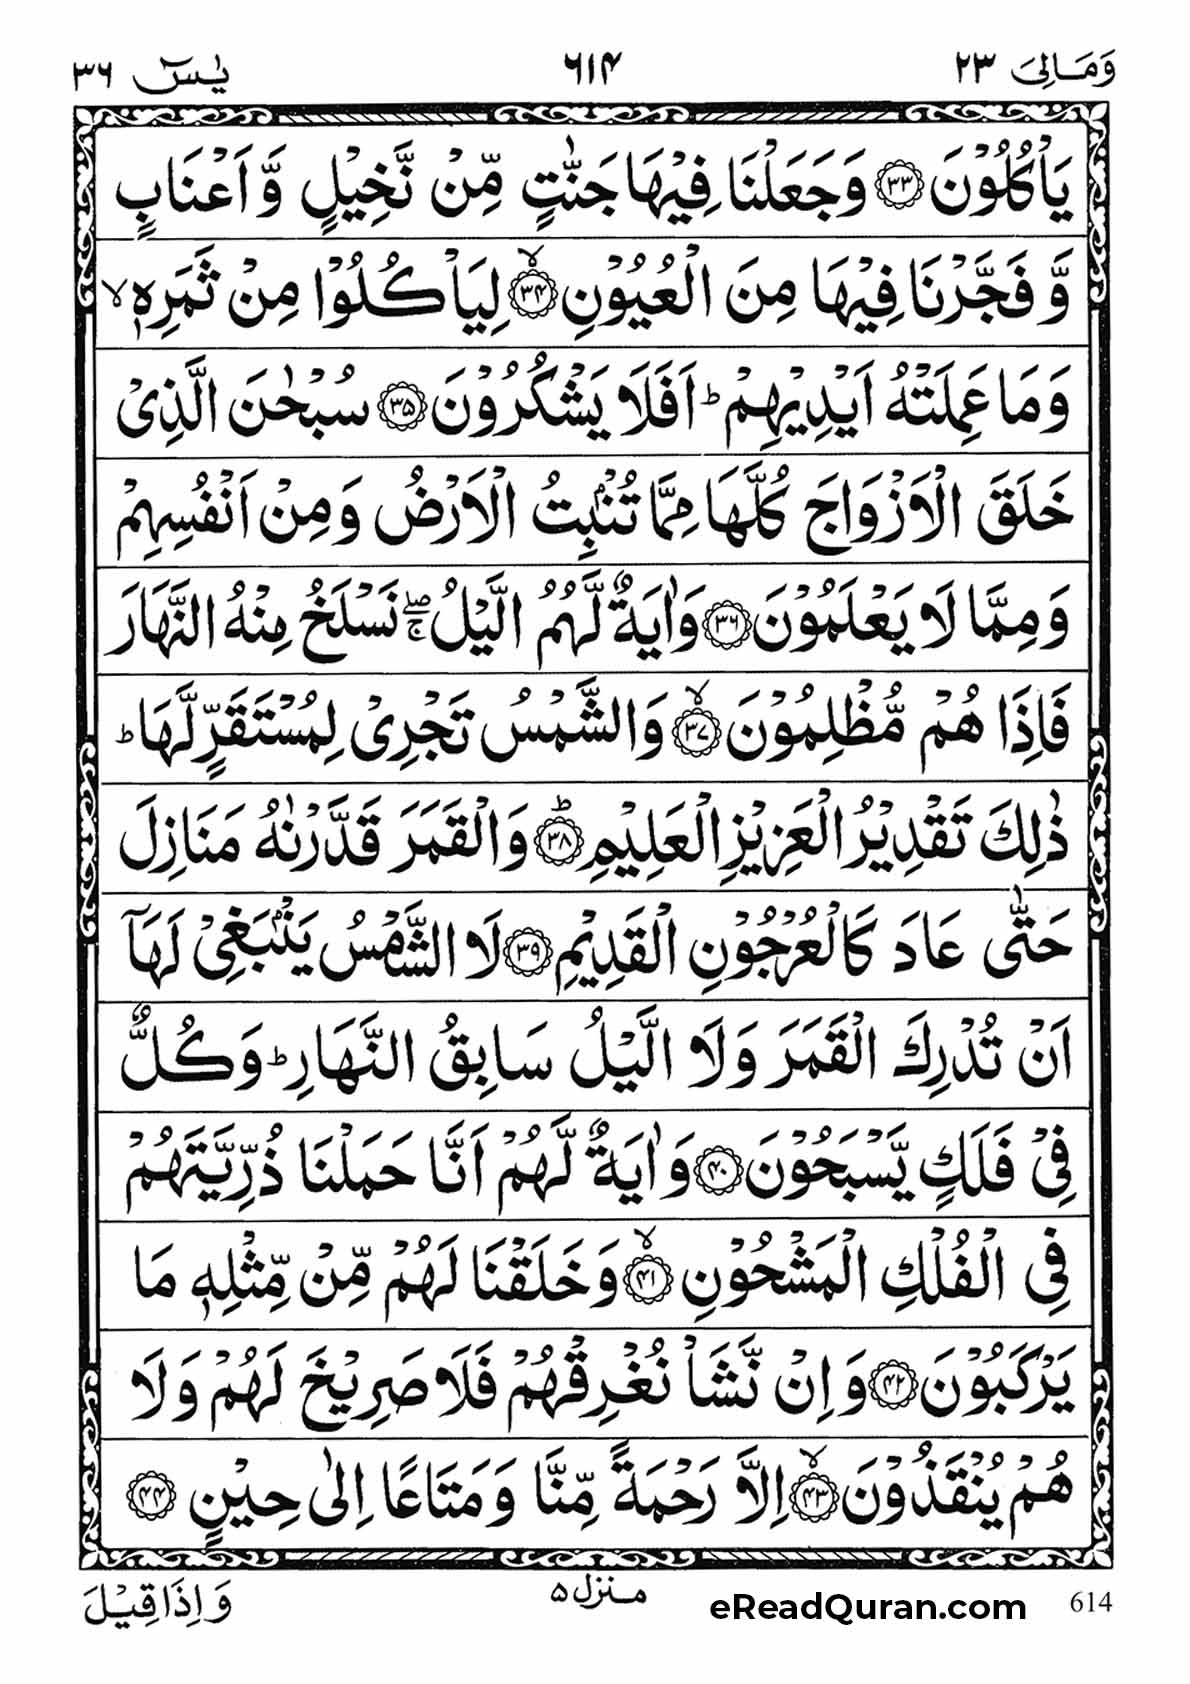 وَمَالِیَ ۲۳
۶۱۴
یٰسٓ ۳۶
یَاْكُلُوْنَ ﴿۳۳﴾ وَجَعَلْنَا فِیْهَا جَنّٰتٍ مِّنْ نَّخِیْلٍ وَّ اَعْنَابٍ
وَّ فَجَّرْنَا فِیْهَا مِنَ الْعُیُوْنِ ﴿۳۴﴾ۙ لِیَاْكُلُوْا مِنْ ثَمَرِهٖۙ
وَمَا عَمِلَتْهُ اَیْدِیْهِمْؕ اَفَلَا یَشْكُرُوْنَ ﴿۳۵﴾ سُبْحٰنَ الَّذِیْ
خَلَقَ الْاَزْوَاجَ كُلَّهَا مِمَّا تُنْۢبِتُ الْاَرْضُ وَمِنْ اَنْفُسِهِمْ
وَمِمَّا لَا یَعْلَمُوْنَ ﴿۳۶﴾ وَاٰیَةٌ لَّهُمُ الَّیْلُۖۚ نَسْلَخُ مِنْهُ النَّهَارَ
فَاِذَا هُمْ مُّظْلِمُوْنَ ﴿۳۷﴾ۙ وَالشَّمْسُ تَجْرِیْ لِمُسْتَقَرٍّ لَّهَاؕ
ذٰلِكَ تَقْدِیْرُ الْعَزِیْزِ الْعَلِیْمِ ﴿۳۸﴾ؕ وَالْقَمَرَ قَدَّرْنٰهُ مَنَازِلَ
حَتّٰی عَادَ كَالْعُرْجُوْنِ الْقَدِیْمِ ﴿۳۹﴾ لَا الشَّمْسُ یَنْۢبَغِیْ لَهَاۤ
اَنْ تُدْرِكَ الْقَمَرَ وَلَا الَّیْلُ سَابِقُ النَّهَارِؕ وَكُلٌّ
فِیْ فَلَكٍ یَّسْبَحُوْنَ ﴿۴۰﴾ وَاٰیَةٌ لَّهُمْ اَنَّا حَمَلْنَا ذُرِّیَّتَهُمْ
فِی الْفُلْكِ الْمَشْحُوْنِ ﴿۴۱﴾ۙ وَخَلَقْنَا لَهُمْ مِّنْ مِّثْلِهٖ مَا
یَرْكَبُوْنَ ﴿۴۲﴾ وَاِنْ نَّشَاْ نُغْرِقْهُمْ فَلَا صَرِیْخَ لَهُمْ وَلَا
هُمْ یُنْقَذُوْنَ ﴿۴۳﴾ۙ اِلَّا رَحْمَةً مِّنَّا وَمَتَاعًا اِلٰی حِیْنٍ ﴿۴۴﴾
614
eReadQuran.com
منزل ۵
وَاِذَا قِیْلَ